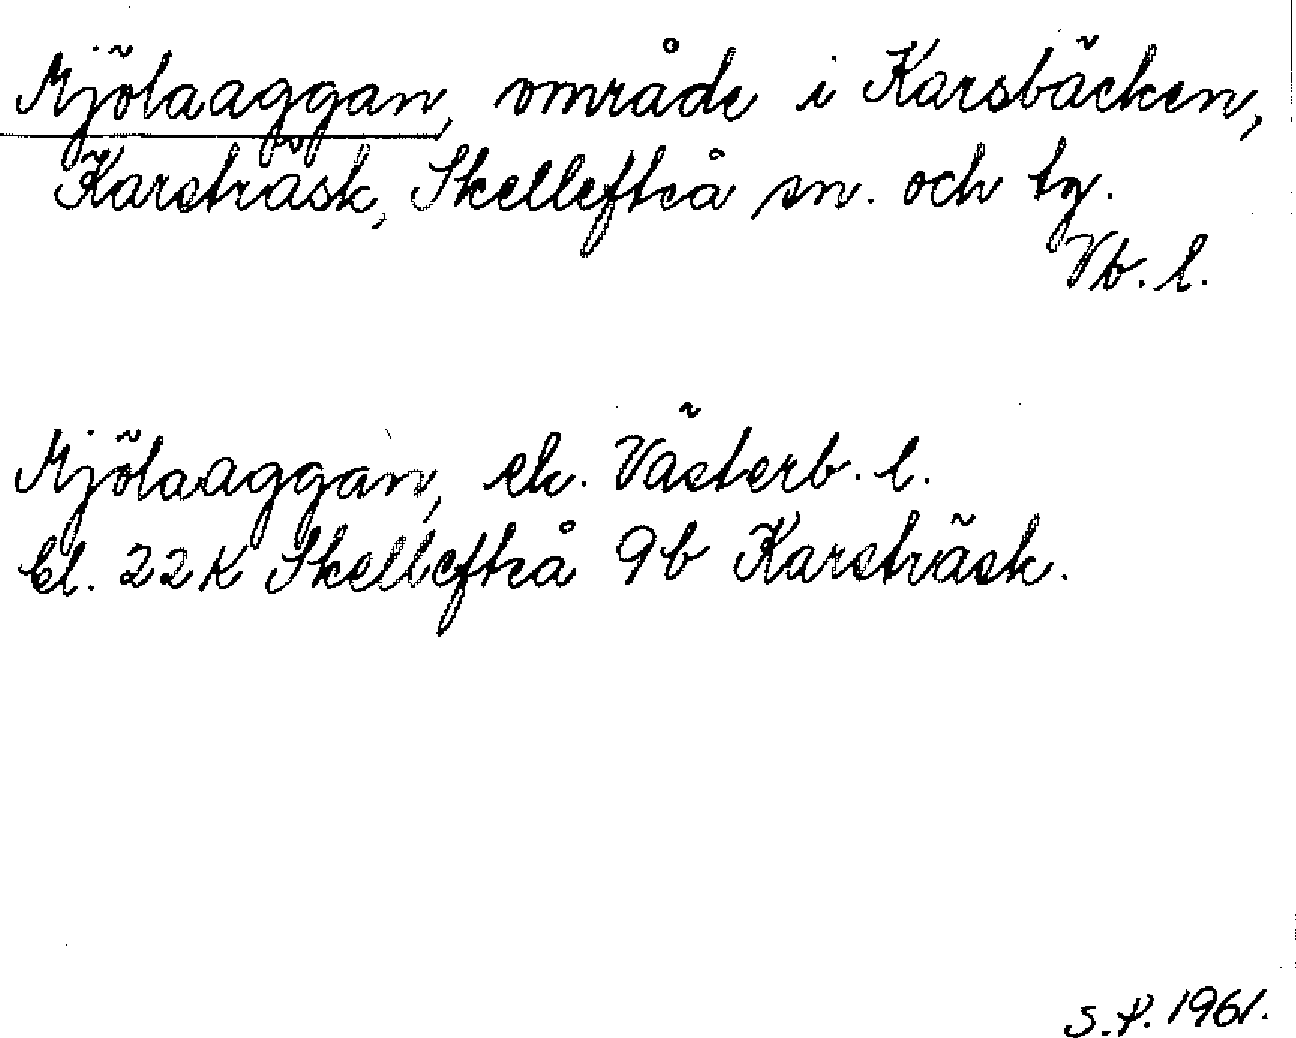 Mjölaaggan, område i Karsbäcken,
Karsträsk, Skellefteå sn. och tg.
Vb. l.
Mjölaaggan, ek. Västerb. l.
bl. 22K Skellefteå 9b Karsträsk.
S.P. 1961.